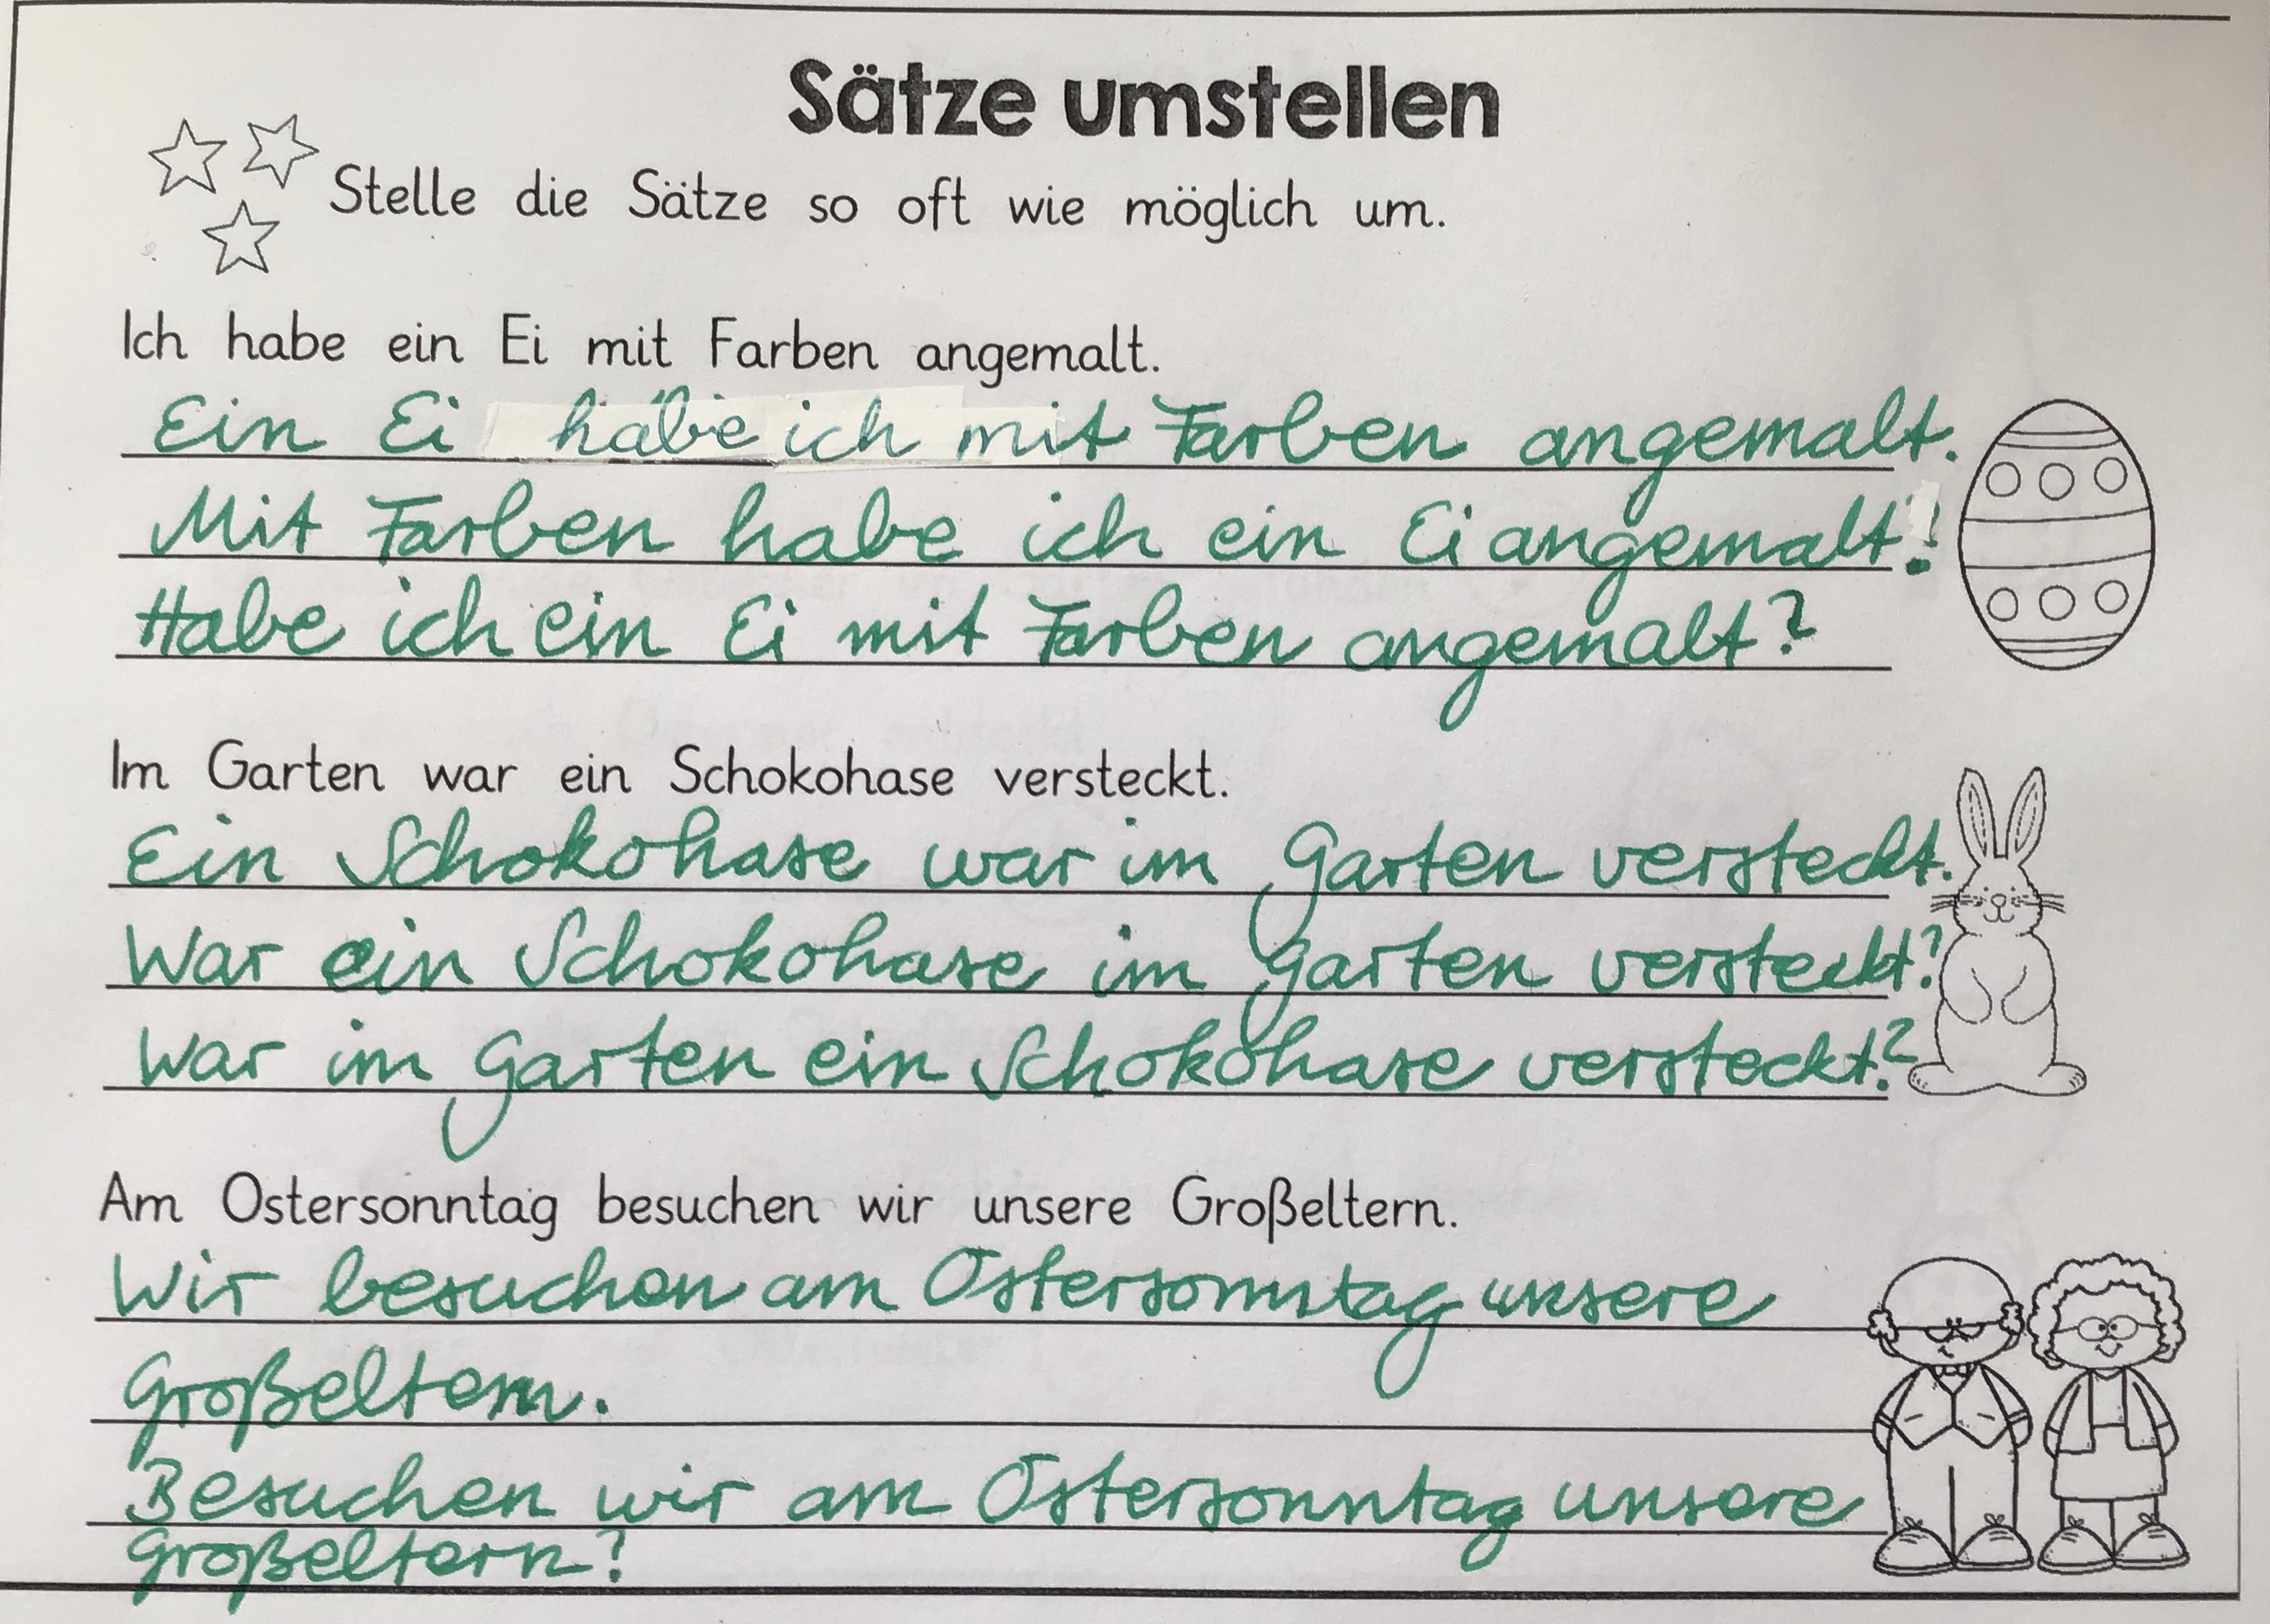 Sätze umstellen
Stelle die Sätze so oft wie möglich um.
Ich habe ein Ei mit Farben angemalt.
Ein Ei habe ich mit Farben angemalt.
Mit Farben habe ich ein Ei angemalt!
Habe ich ein Ei mit Farben angemalt?
Im Garten war ein Schokohase versteckt.
Ein Schokohase war im Garten versteckt.
War ein Schokohase im Garten versteckt?
War im Garten ein Schokohase versteckt?
Am Ostersonntag besuchen wir unsere Großeltern.
Wir besuchen am Ostersonntag unsere
Großeltern.
Besuchen wir am Ostersonntag unsere
Großeltern?